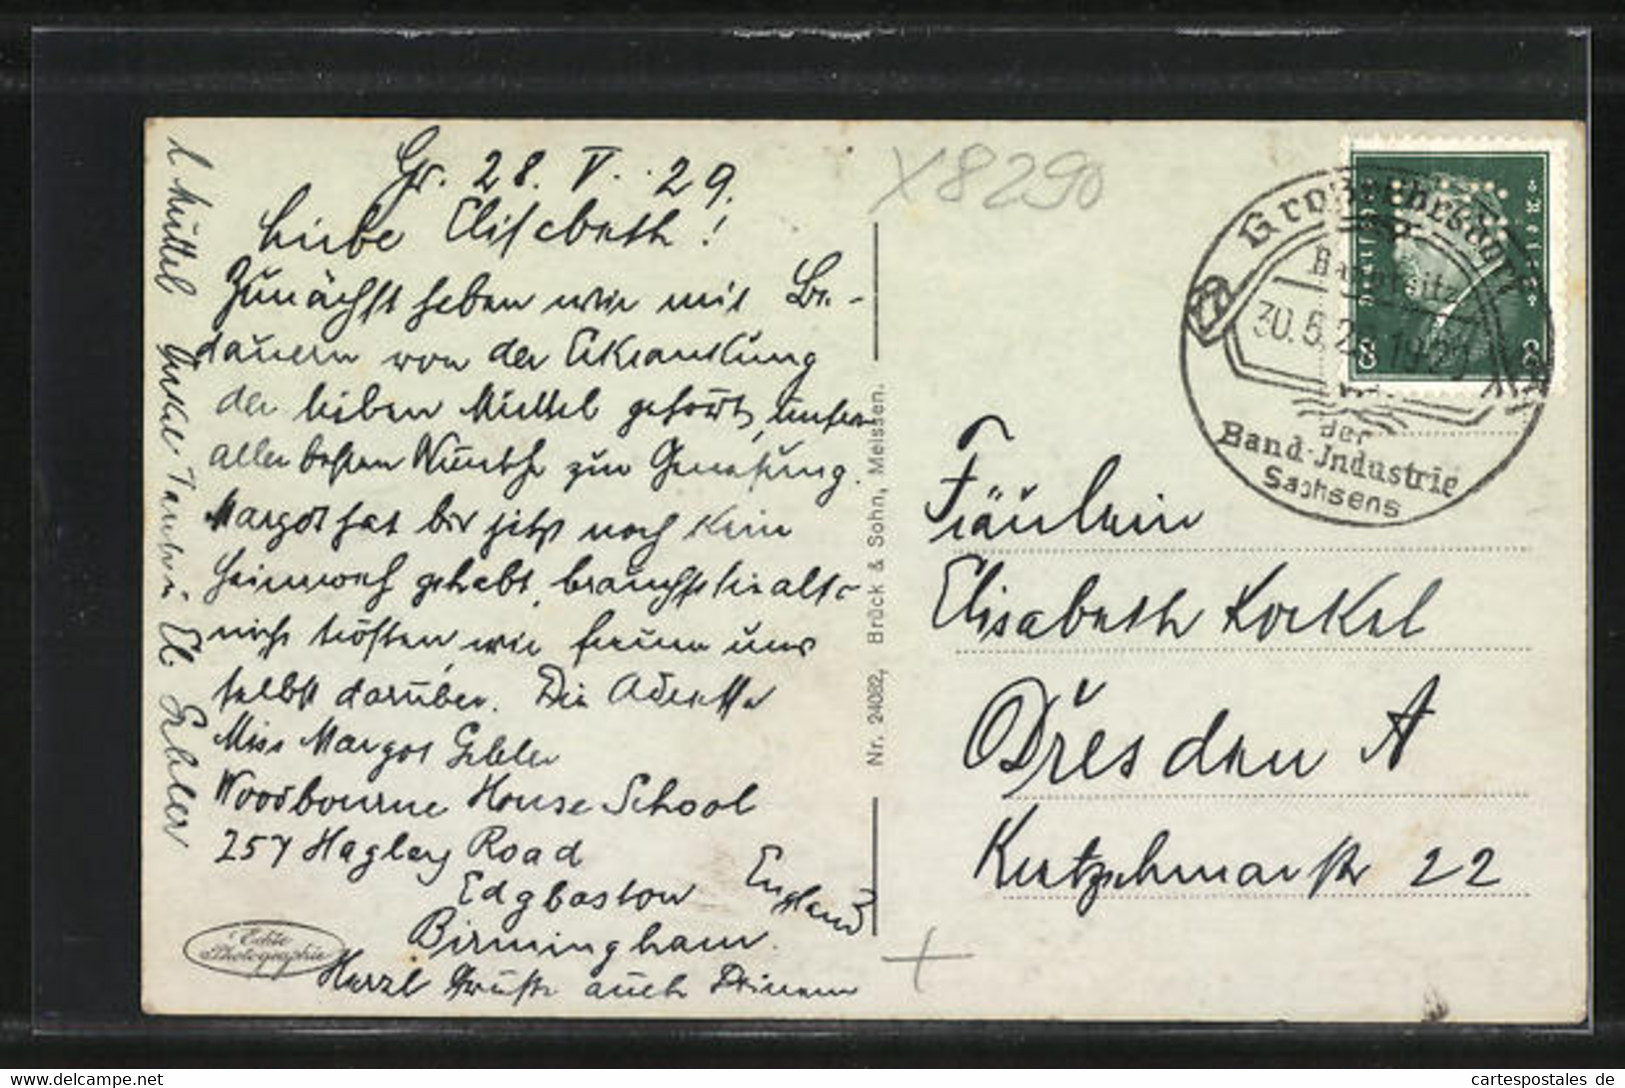 Gr. 28. V. 29.
Liebe Elisabeth!
Zunächst haben wir mit Be-
dauern von der Erkrankung
der lieben Mittel gehört, unsere
allerbesten Wünsche zur Genesung.
Margot hat bis jetzt noch kein
Heimweh gehabt, brauchst sie also
nicht trösten, wir freuen uns
selbst darüber. Die Adresse
Miss Margot Gebler
Woodbourne House School
257 Hagley Road
Edgbaston England
Birmingham.
Herzl. Grüße auch Deinem
l. Mittel Onkel Tante u El. Gebler
Echte
Photographie
Nr. 24082, Brück & Sohn, Meissen.
X8290
Großröhrsdorf
30.5.29
der
Band-Industrie
Sachsens
Deutsches Reich
8 8
Fräulein
Elisabeth Korkel
Dresden A
22
cartespostales de
www.delcampe.net